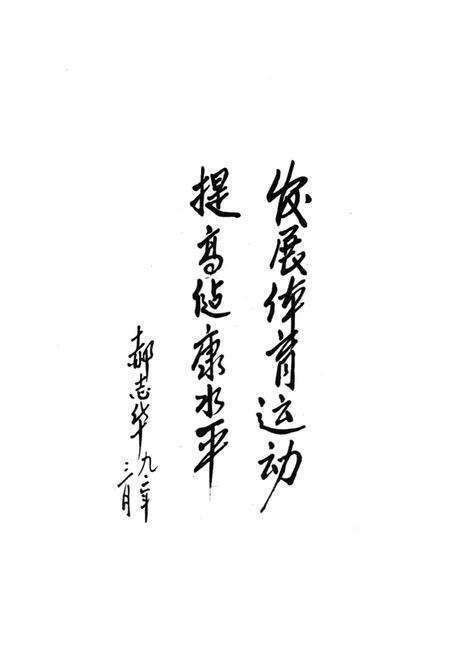 发展体育运动
提高健康水平
郝志华 九二年
三月